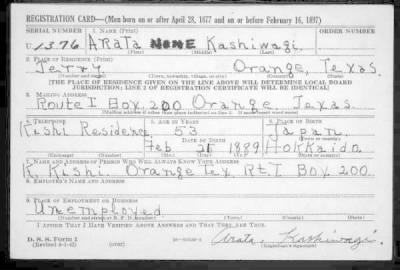 REGISTRATION CARD—(Men born on or after April 28, 1877 and on or before February 16, 1897)
SERIAL NUMBER 1. NAME (Print) ORDER NUMBER
U 1376 ARATA NONE Kashiwagi.
(First) (Middle) (Last)
2. PLACE OF RESIDENCE (Print)
Terry Orange, Texas.
(Number and street) (Town, township, village, or city) (County) (State)
[THE PLACE OF RESIDENCE GIVEN ON THE LINE ABOVE WILL DETERMINE LOCAL BOARD
JURISDICTION; LINE 2 OF REGISTRATION CERTIFICATE WILL BE IDENTICAL]
3. MAILING ADDRESS
Route I Box 200 Orange Texas.
[Mailing address if other than place indicated on line 2. If same insert word same]
4. TELEPHONE 5. AGE IN YEARS 6. PLACE OF BIRTH
Kishi Residence 53 Japan.
DATE OF BIRTH (Town or county)
Feb 21 1889 Hokkaido
(Exchange) (Number) (Mo.) (Day) (Yr.) (State or country)
7. NAME AND ADDRESS OF PERSON WHO WILL ALWAYS KNOW YOUR ADDRESS
K. Kishi. Orange Tex Rt. I Box 200.
8. EMPLOYER'S NAME AND ADDRESS
9. PLACE OF EMPLOYMENT OR BUSINESS
Unemployed
(Number and street or R. F. D. number) (Town) (County) (State)
I AFFIRM THAT I HAVE VERIFIED ABOVE ANSWERS AND THAT THEY ARE TRUE.
D. S. S. Form 1
(Revised 4-1-42) Arata, Kashiwagi.
(Registrant's signature)